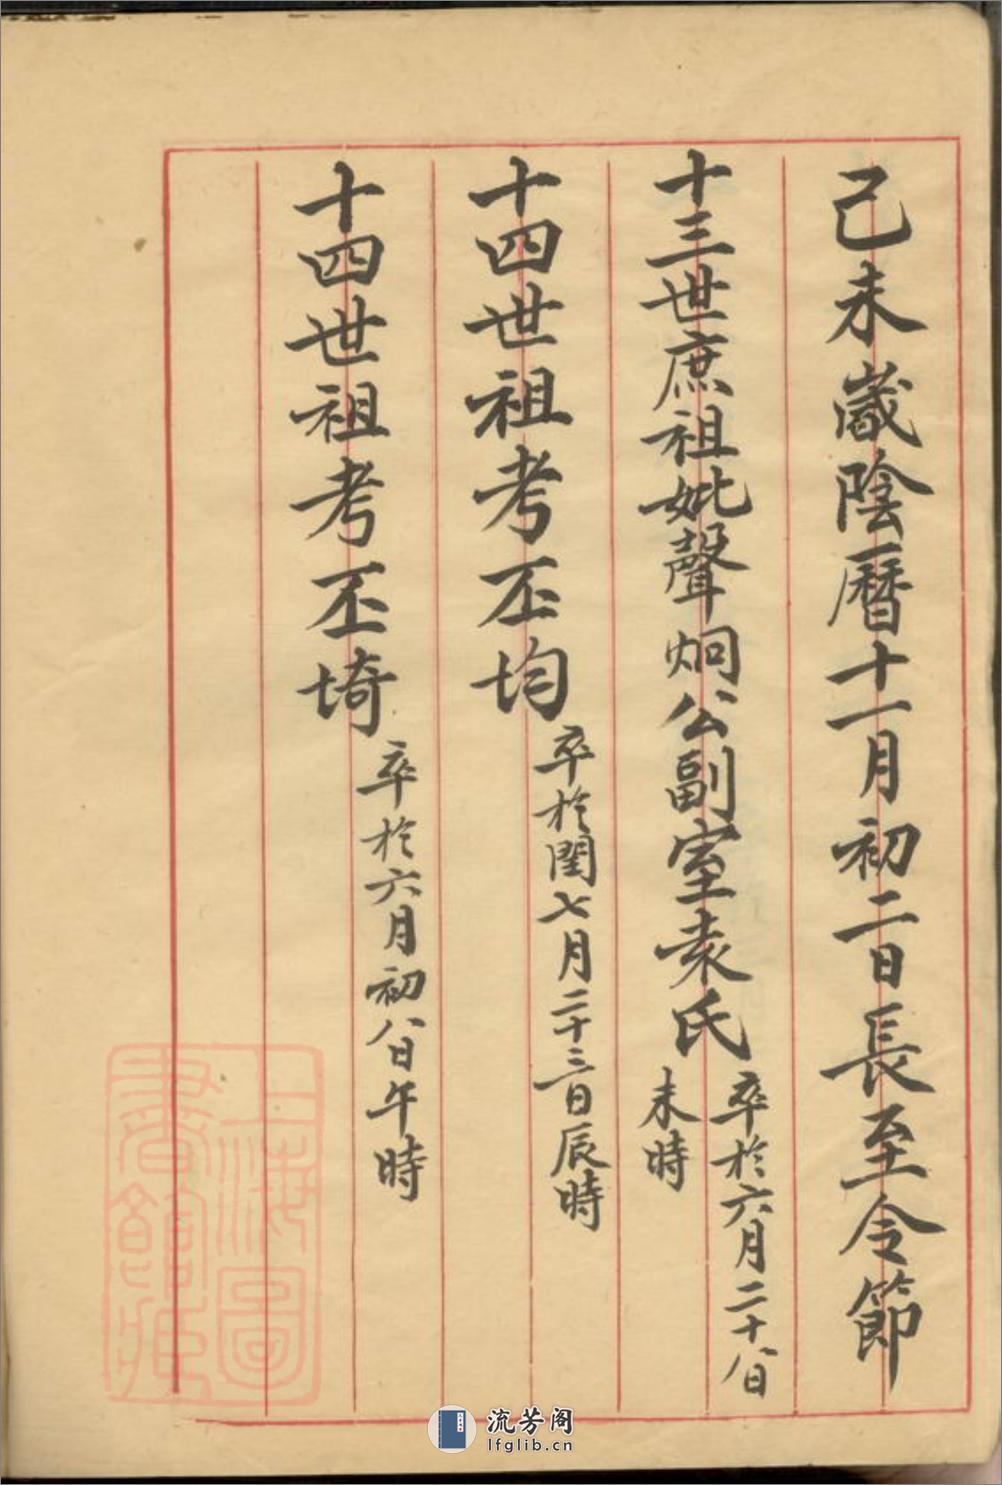 己未歲陰曆十一月初二日長至令節
十三世庶祖妣聲炯公副室袁氏
卒於六月二十八日
未時
十四世祖考丕均
卒於閏七月二十三日辰時
十四世祖考丕埼
卒於六月初八日午時
上海圖
書館藏
流芳阁
lfglib.cn